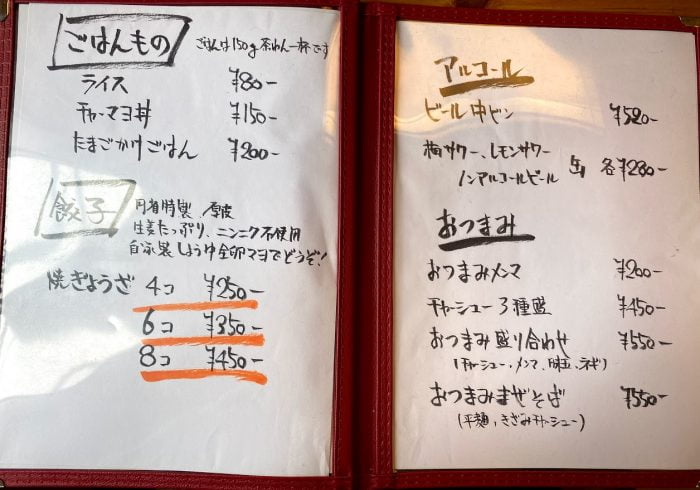 ごはんもの ごはんは150g茶わん一杯です
ライス ¥80-
チャーマヨ丼 ¥150-
たまごかけごはん ¥200-
餃子 円谷特製 厚皮
生姜たっぷり、ニンニク不使用
自家製しょうゆ全卵マヨでどうぞ!
焼ぎょうざ 4コ ¥250-
6コ ¥350-
8コ ¥450-
アルコール
ビール中ビン ¥520-
梅サワー、レモンサワー
ノンアルコールビール 各¥280-
おつまみ
おつまみメンマ ¥200-
チャーシュー3種盛 ¥450-
おつまみ盛り合わせ ¥550-
(チャーシュー、メンマ、味玉、ネギ)
おつまみまぜそば ¥550-
(平麺、きざみチャーシュー)